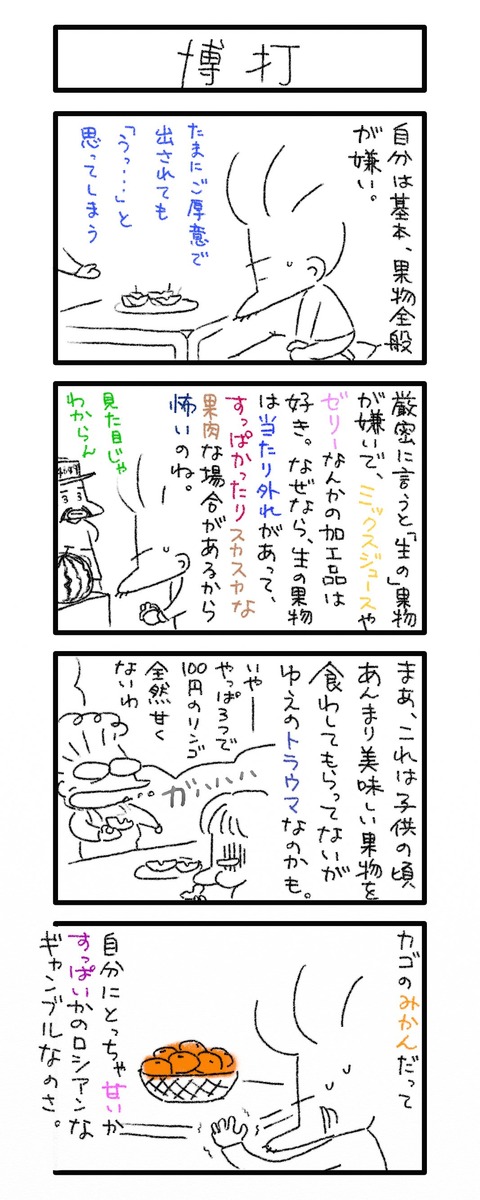 博打
自分は基本、果物全般
が嫌い。
たまにご厚意で
出されても
「うっ…」と
思ってしまう
厳密に言うと「生の」果物
が嫌いで、ミックスジュースや
ゼリーなんかの加工品は
好き。なぜなら、生の果物
は当たり外れがあって、
すっぱかったりスカスカな
果肉な場合があるから
怖いのね。
見た目じゃ
わからん
まあ、これは子供の頃
あんまり美味しい果物を
食わしてもらってないが
ゆえのトラウマなのかも。
いやー
やっぱ3つで
100円のリンゴ
全然甘く
ないわ
ガハハハハ
カゴのみかんだって
自分にとっちゃ甘いか
すっぱいかのロシアンな
ギャンブルなのさ。